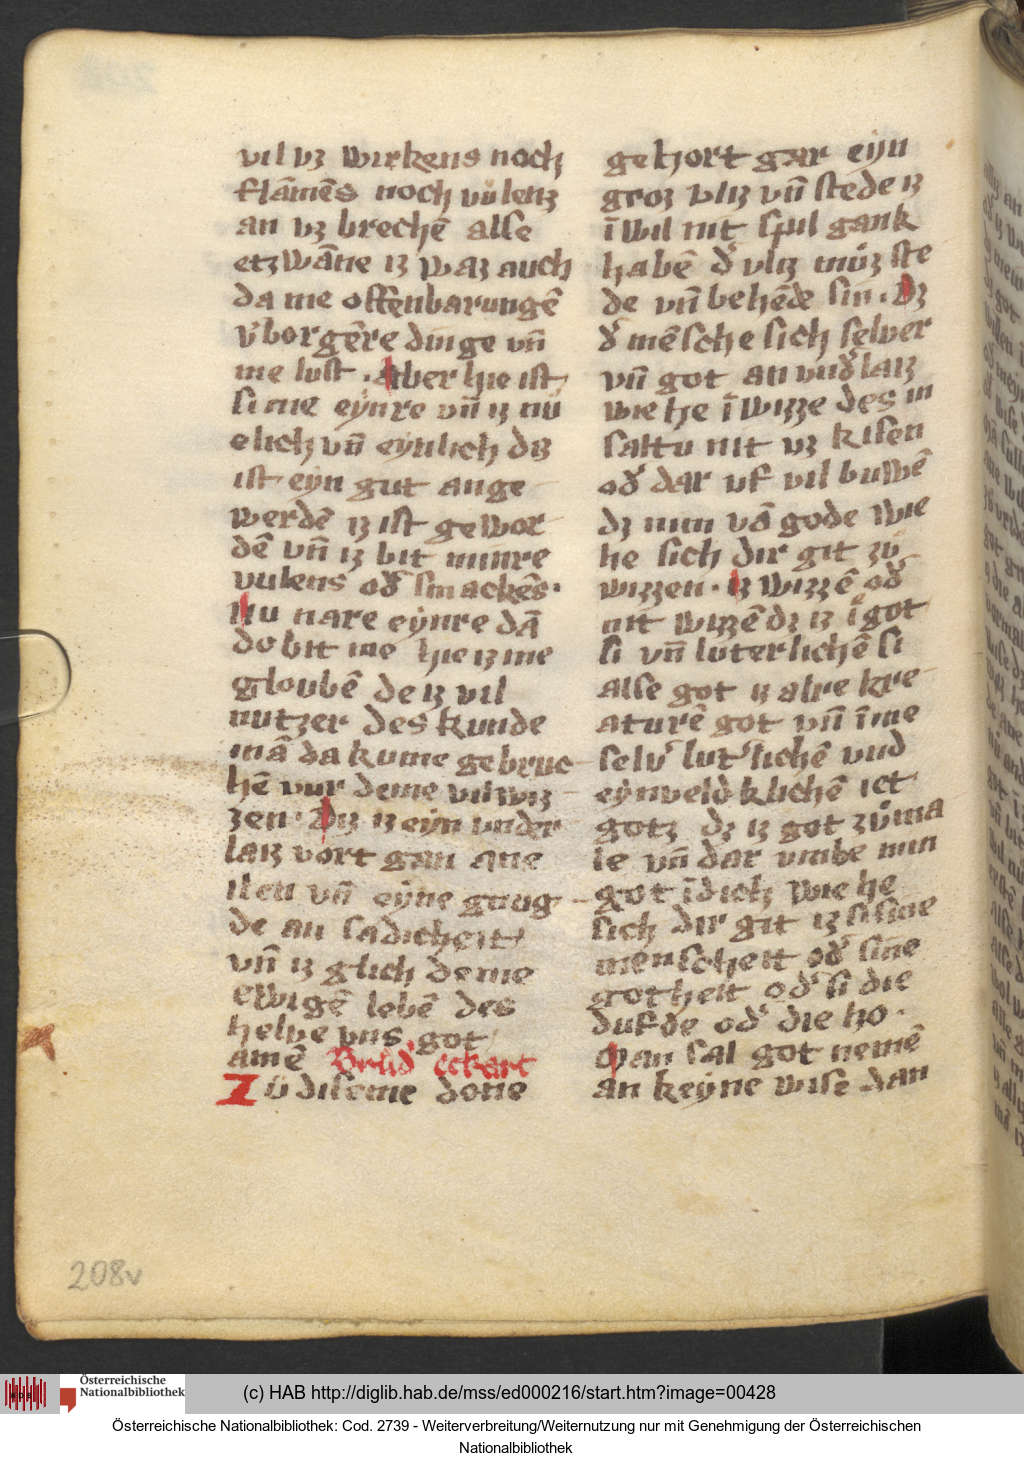 vil vʒ wirkens noch
flāmēs noch vůlenʒ
an vʒ brechē alse
etʒwāne iʒ waʒ auch
da me offenbarungē
v̓borgēre dinge vn̄
me lust · Aber hie ist
si me eynre vn̄ iʒ nů
elich vn̄ eynlich diʒ
ist eyn gut ange
werdē iʒ ist gewor
dē vn̄ iʒ bit minre
vulens od̓ smackēs ·
Nu nare eynre dā
do bit me hie iʒ me
gloubē de iʒ vil
nutzer des kunde
mā da kume gebruc
hē vur deme vil wiʒ
zen · Diʒ iʒ eyn vnder
laiʒ vort gan ane
ilen vn̄ eyne gnug
de an sadicheit
vn̄ iʒ glich deme
ewigē lebē des
helpe vns got
amē Brud̓ eckart
Zů diseme done
gehort gar eyn
groʒ vliʒ vn̄ stede iʒ
īwil nit spil gank
habē d̓ vliʒ můʒ ste
de vn̄ behēde sin · Dʒ
d̓ mēsche sich selver
vn̄ got an vnd̓laiʒ
wie he ī wizze des in
saltu nit vʒ kisen
od̓ dar vf vil buwē
dʒ nim vā gode wie
he sich dir git zů
wizzen · iʒ wizzē od̓
nit wizzē dʒ iʒ ī got
si vn̄ luterlichē si
alse got iʒ alre kre
aturē got vn̄ ī me
selv̓ lut̓lichē vnd
eynveldklichē ict
gotʒ dʒ iʒ got zů ma
le vn̄ dar vmbe min
got ī dich wie he
sich dir git iʒ si sine
menscheit od̓ sine
gotheit od̓ si die
dufde od̓ die ho ·
Man sal got nemē
an keyne wise dan
208v
Österreichische
Nationalbibliothek
(c) HAB http://diglib.hab.de/mss/ed000216/start.htm?image=00428
Österreichische Nationalbibliothek: Cod. 2739 - Weiterverbreitung/Weiternutzung nur mit Genehmigung der Österreichischen
Nationalbibliothek